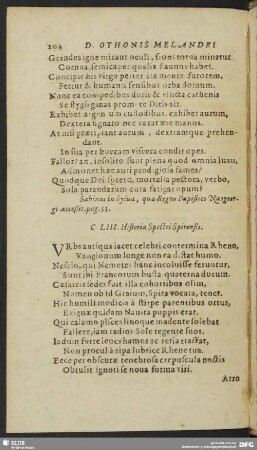 204 D. OTHONIS MELANDRI
Grandes igne micant oculi, frons torva minatur
Cornua, semicaper qualis Faunus habet.
Concipit his virgo perterrita mente furorem,
Fertur & humanis sensibus orba domum.
Nunc ea compedibus duris & vincta cathenis
Se stygis gazas promere Ditis ait.
Exhibet argentum custodibus, exhibet aurum,
Dextera signato nec vacat ære manus.
At nisi præter, iant aurum, dextramque prehendant.
In sua per buccam viscera condit opes.
Fallor? an, insolito sunt plena quod omnia luxu,
Admonet hæc auri prodigiosa fames?
Quodque Dei spreta, mortalia pectora, verbo,
Sola parandarum cura fatigat opum?
Sabinus in Sylva, qua Regno Papistico
accessit, pag. 53.
C LIII. Historia Spectri Spirensis.
VRbs antiqua jacet celebri contermina Rheno,
Vangionum longe non ea distat humo.
Nescio, qui Nemetes hanc incoluisse feruntur,
Sunt ibi Francorum busta quaterna ducum.
Cæsareis sedes fuit illa cohortibus olim,
Nomen ob id Graium, Spira vocata, tenet.
Hic humili modicis à stirpe parentibus ortus,
Exiguæ quidam Navita puppis erat.
Qui calamo pisces linoque madente solebat
Fallere, iam radios Sole tegente suos.
Is dum forte leves hamos ac retia tractat,
Non procul à ripa lubrice Rhene tua.
Ecce per obscuræ tenebrosa crepuscula noctis
Obtulit ignoti se noua forma viri.
Atro
SLUB